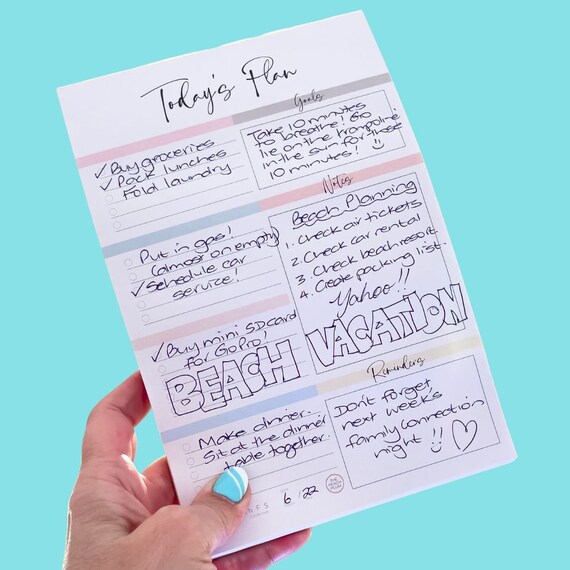 Today's Plan
✓ Buy groceries
✓ Pack lunches
Fold laundry
Put in gas!
(almost on empty)
✓ Schedule car
service!
✓ Buy mini SD card
for GoPro!
BEACH
Make dinner.
Sit at the dinner
table together.
Goals
Take 10 minutes
to breathe! Go
lie on the trampoline
in the sun for those
10 minutes!
Notes
Beach Planning
1. Check air tickets
2. Check car rental
3. Check beach resort
4. Create packing list.
Yahoo!!
VACATION
Reminders
Don't forget
next week's
family connection
night !!
6/22